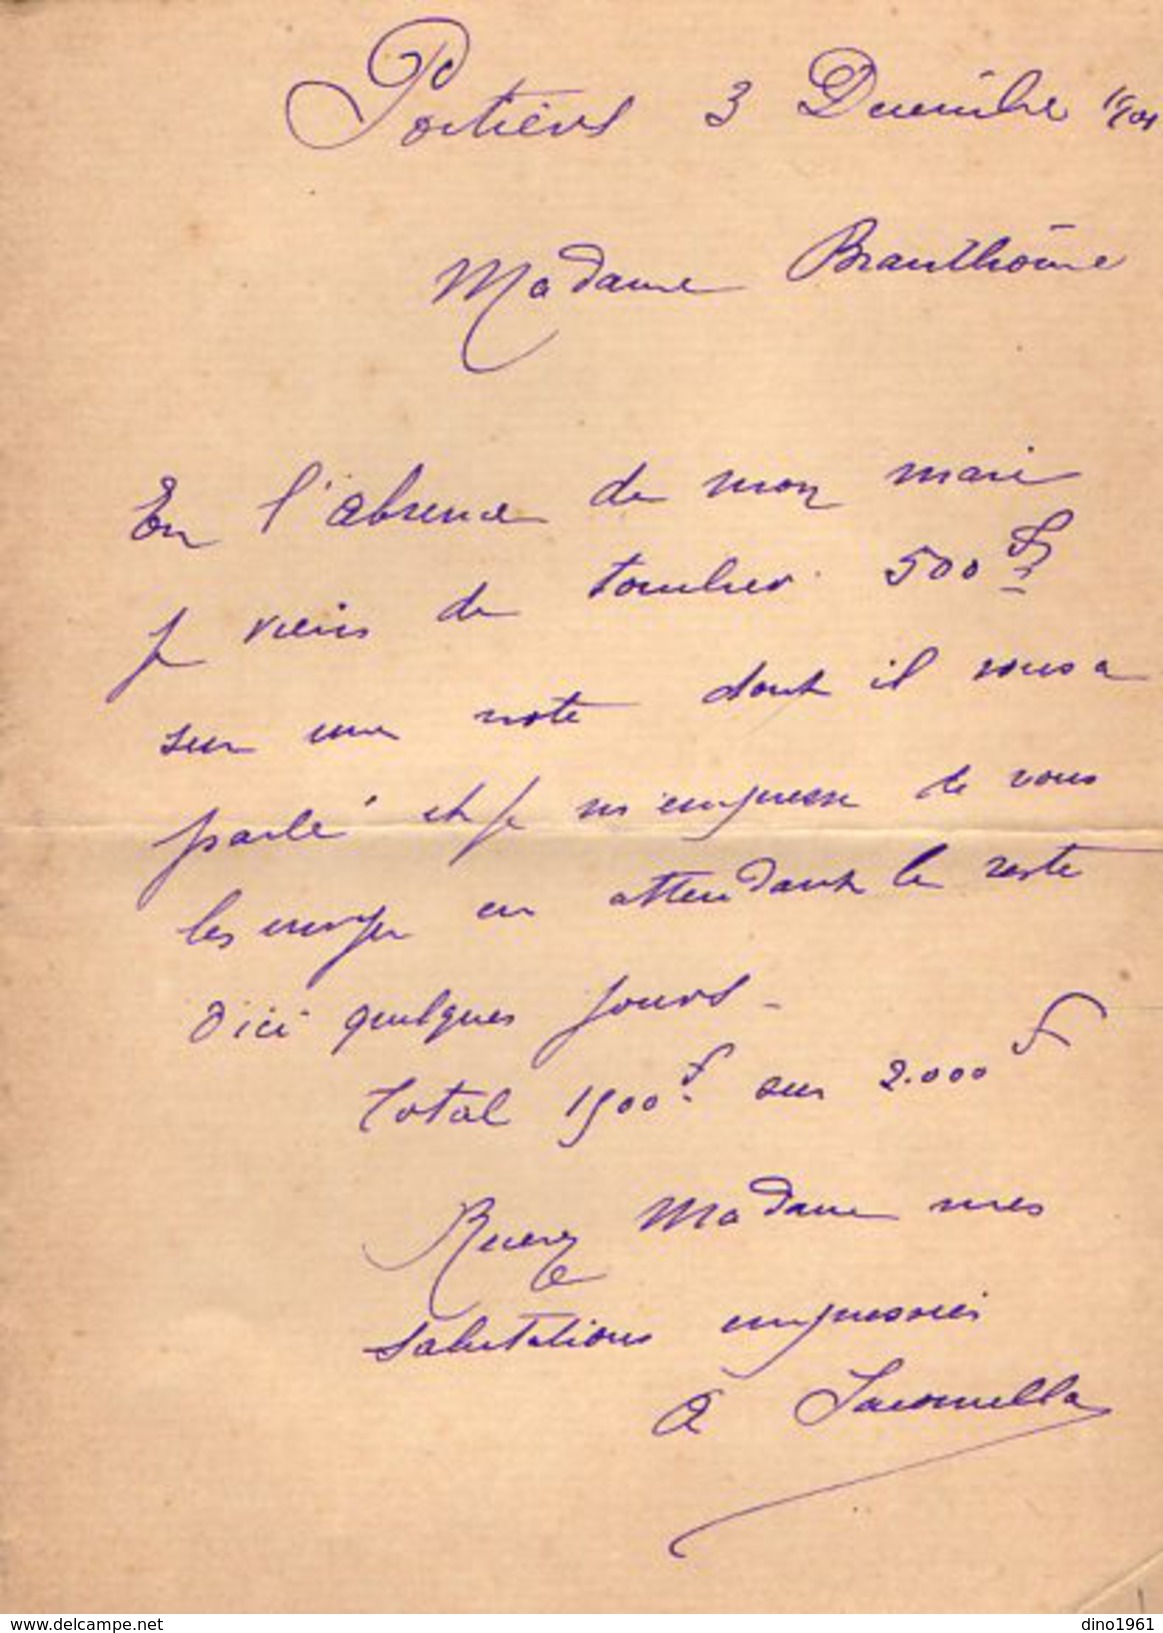 Poitiers 3 Décembre
Madame Branthôme
En l'absence de mon mari
je viens de toucher 500 f
sur une note dont il vous a
parlé et je m'empresse de vous
les envoyer en attendant le reste
d'ici quelques jours -
total 1500 f sur 2.000 f
Recevez Madame mes
salutations empressées
A
delcampe.net
dino1961